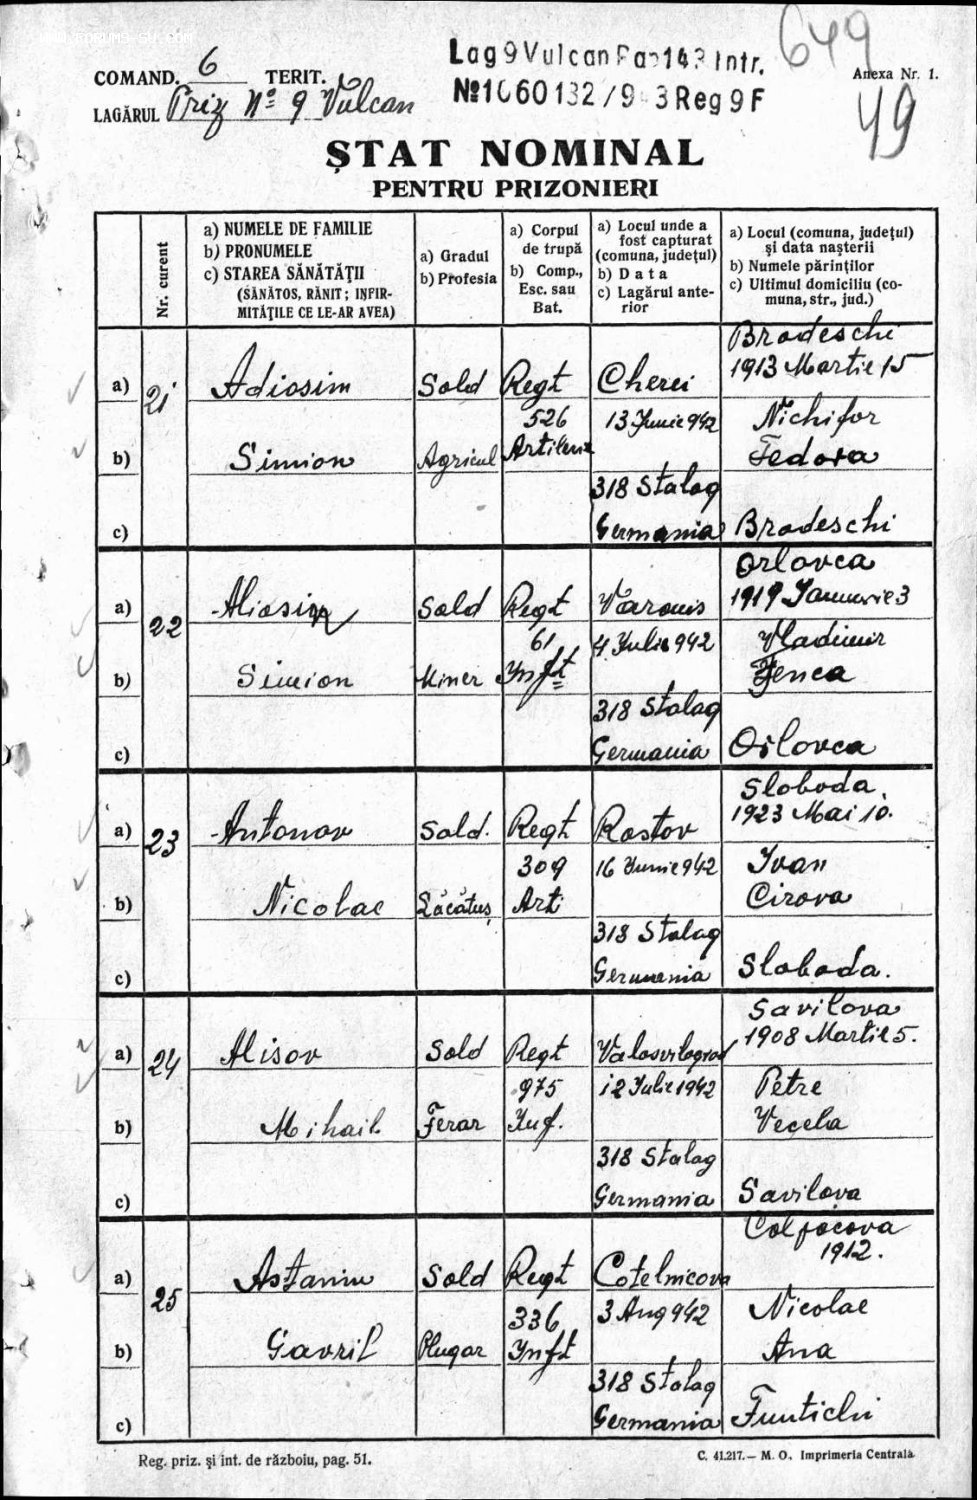 COMAND. 6 TERIT.
LAGĂRUL Priz Nº 9 Vulcan
Lag 9 Vulcan Intr.
649
Anexa Nr. 1.
49
ȘTAT NOMINAL
PENTRU PRIZONIERI
Nr. curent
a) NUMELE DE FAMILIE
b) PRONUMELE
c) STAREA SĂNĂTĂȚII
(SĂNĂTOS, RĂNIT; INFIR-
MITĂȚILE CE LE-AR AVEA)
a) Gradul
b) Profesia
a) Corpul
de trupă
b) Comp.,
Esc. sau
Bat.
a) Locul unde a
fost capturat
(comuna, județul)
b) Data
c) Lagărul ante-
rior
a) Locul (comuna, județul)
și data nașterii
b) Numele părinților
c) Ultimul domiciliu (co-
muna, str., jud.)
Bradeschi
1913 Martie 15
a) 21 Adiosim Sold Regt Cherci
526 13 Junie 942 Nichifor
b) Simion Agricul Artilerie Fedora
318 Stalag
c) Germania Bradeschi
Orlovca
1919 Januarie 3
a) 22 Aliosin Sold Regt Varonis
61 4 Julie 942 Vladimir
b) Simion Miner Ynft Jenea
318 Stalag
c) Germania Orlovca
Sloboda
1923 Mai 10.
a) 23 Antonov Sold. Regt Rostov
309 16 Junie 942 Ivan
b) Nicolae Lăcătuș Art Cirova
318 Stalag
c) Germania Sloboda.
Savilova
1908 Martie 5.
a) 24 Alisov Sold Regt
975 12 Julie 1942 Petre
b) Mihail Ferar Inf. Vecela
318 Stalag
c) Germania Savilova
1912.
a) 25 Astanin Sold Regt Cotelnicova
336 3 Aug 942 Nicolae
b) Gavril Plugar Ynft Ana
318 Stalag
c) Germania Funtichi
Reg. priz. și int. de războiu, pag. 51.
C. 41.217.— M. O. Imprimeria Centrală